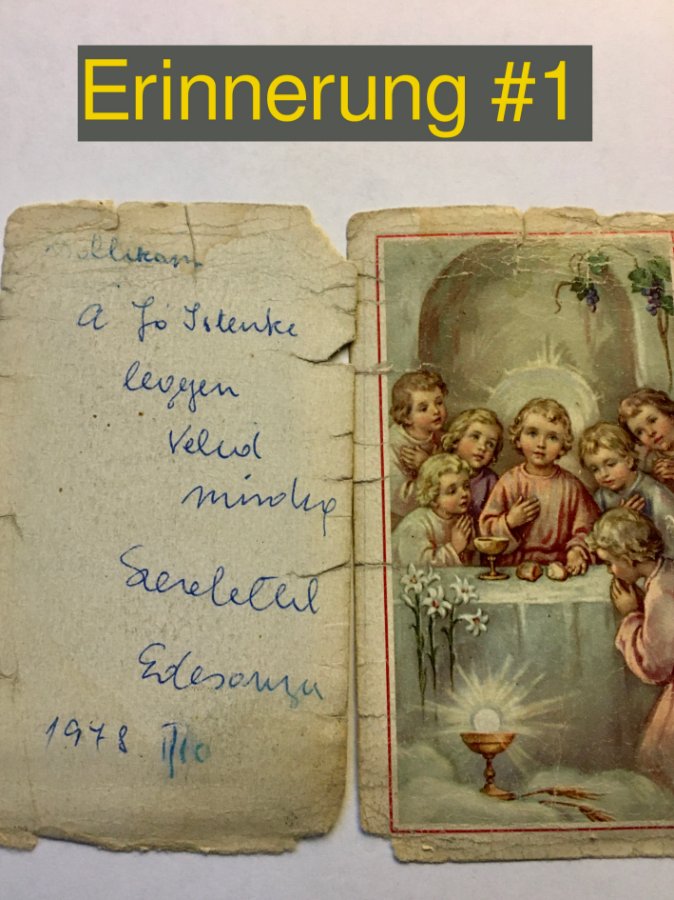 Erinnerung #1
A Jó Istenke
legyen
Veled
mindég
Szeretettel
Édesanya
1978